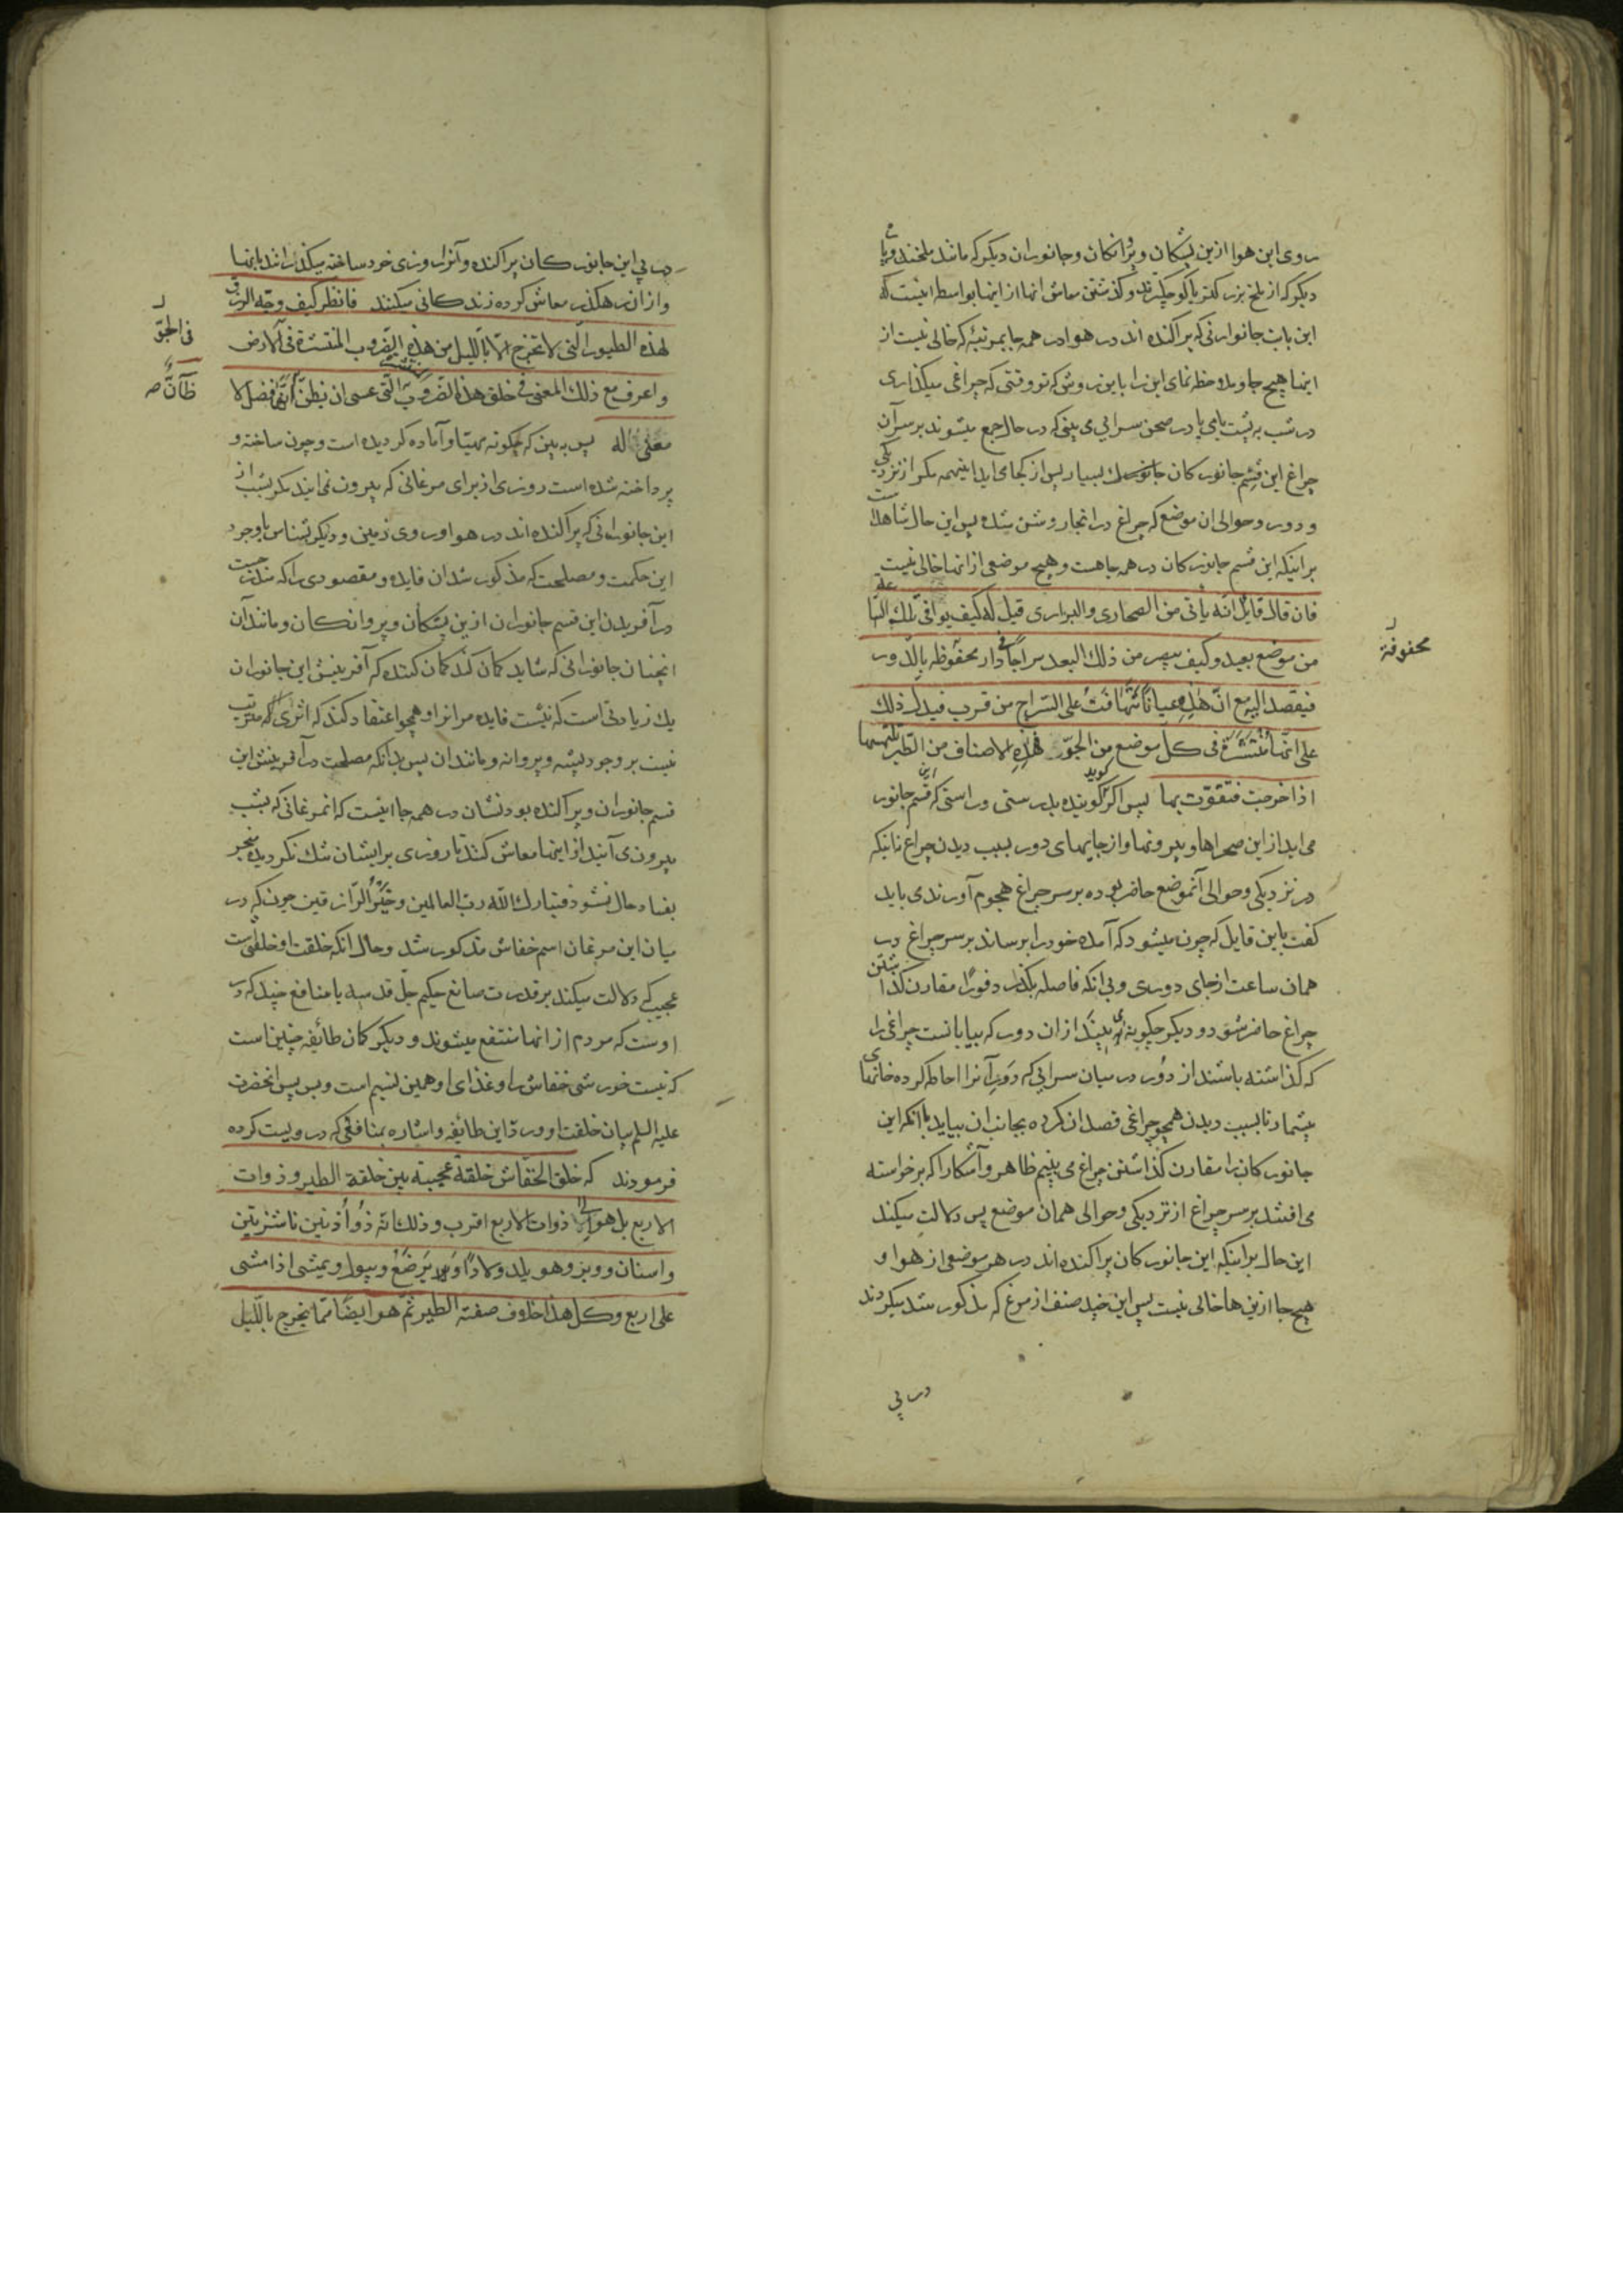 روی این هوا ازین پشکان و پروانکان و جانوران دیکر که مانند ملخند و یا
دیکر که از ملخ بزرکتر یا کوچکترند و کذشتن معاش انها از اینها بواسطه اینست که
این بابت جانوارنی که پراکنده اند در هوا در همه جا بمرتبۀ که خالی نیست از
اینها هیچ جا و ملاحظه نمای این را باین روش که تو وقتی که چراغی میکذاری
در شب به پشت بامی یا در صحن سرایی می بینی که در حال جمع میشوند بر سر آن
چراغ این قسم جانورکان بسیار پس از کجا می اید اینهمه مکر از نزدیکی
و دور و حوالی ان موضع که چراغ در انجا روشن شده پس این حال شاهد است
بر اینکه این قسم جانورکان در همه جا هست و هیچ موضعی از انها خالی نیست
فان قال قایل انّه یأتی من الصحاری والبراری قیل له کیف یوافی تلک السّاعة
من موضع بعید و کیف یبصر من ذلک البعد سراجًا فی دار محفوظه بالدّور
محفوفة
فیقصد الیه مع انّ هذه عیانًا تتهافت علی السّراج من قرب فیدلّ ذلک
علی انّها منتشرة فی کل موضع من الجوّ فهذه الاصناف من الطّیر تلتمسها
اذا خرجت فتقوّت بها پس اکر کوید کوینده بدرستی و راستی که این قسم جانور
می اید از این صحراها و بیرونها و از جایهای دور بسبب دیدن چراغ نه اینکه
در نزدیکی و حوالی آنموضع حاضر بوده بر سر چراغ هجوم آورند می باید
کفت باین قایل که چون میشود که آمده خود را برساند بر سر چراغ در
همان ساعت از جای دوری و بی انکه فاصله بکذرد فورًا مقارن کذاشتن
چراغ حاضر شود و دیکر چکونه می بیند از ان دور که بیابانست چراغی را
که کذاشته باشند از دور در میان سرایی که دَور آنرا احاطه کرده خانهای
بیشمار تا بسبب دیدن همچو چراغی قصد ان کرده بجانب ان بیاید با انکه این
جانورکان را مقارن کذاشتن چراغ می بینیم ظاهر و آشکارا که برخواسته
می افتند بر سر چراغ از نزدیکی و حوالی همان موضع پس دلالت میکند
این حال بر اینکه این جانورکان پراکنده اند در هر موضعی از هوا و
هیچ جا ازین ها خالی نیست پس این چند صنف از مرغ که مذکور شد میکردند
در پی
در پی این جانورکان پراکنده و آنرا روزی خود ساخته میکذرانند باینها
و از ان رهکذر معاش کرده زندکانی میکنند فانظر کیف وجّه الرزق
لهذه الطیور الّتی لا تخرج الّا باللّیل من هذه الضّروب المنتشرة فی الارض
فی الجوّ
و اعرف مع ذلک المعنی فی خلق هذه الضّروب الّتی عسی ان یظنّ انّها فضل لا
ظآنّ صـ
معنی له پس به بین که چکونه مهیّا و آماده کردیده است و چون ساخته و
پرداخته شده است روزی از برای مرغانی که بیرون نمی ایند مکر بشب از
این جانورانی که پراکنده اند در هوا و روی زمین و دیکر بشناس باوجود
این حکمت و مصلحت که مذکور شد ان فایده و مقصودی را که
در آفریدن این قسم جانوران ازین پشکان و پروانکان و مانند آن
انچنان جانورانی که شاید کمان کند کمان کننده که آفرینش این جانوران
یک زیادتی است که نیست فایده مر انرا و همچو اعتقاد کند که اثری که مترتب
نیست بر وجود پشه و پروانه و مانند ان پس بدانکه مصلحت در آفرینش این
قسم جانوران و پراکنده بودنشان در همه جا اینست که انمرغانی که بشب
بیرون می آیند از اینها معاش کنند تا روزی بر ایشان تنک نکردیده منجر
بفساد حال نشود فتبارک اللّه ربّ العالمین و خیر الرّازقین چون که در
میان این مرغان اسم خفاش مذکور شد و حال انکه خلقت او خلقی است
عجیب که دلالت میکند بر قدرت صانع حکیم جلّ قدسه با منافع چند که در
اوست که مردم از انها منتفع میشوند و دیکر کمان طائفه چنین است
که نیست خورشی خفاش را و غذای او همین نسیم است و بس پس انحضرت
علیه السلم بیان خلقت او و ردّ این طائفه و اشاره بمنافعی که در ویست کرده
فرمودند که خلق الخفّاش خلقة عجیبة بین خلقة الطیر و ذوات
الاربع بل هو الی ذوات الاربع اقرب و ذلک انّه ذو اُذنین ناشزتین
و اسنان و وبر و هو یلد ولادًا و یَرضَعُ و یبول و یمشی اذا مشی
علی اربع و کل هذا خلاف صفة الطیر ثمّ هو ایضًا ممّا یخرج باللّیل